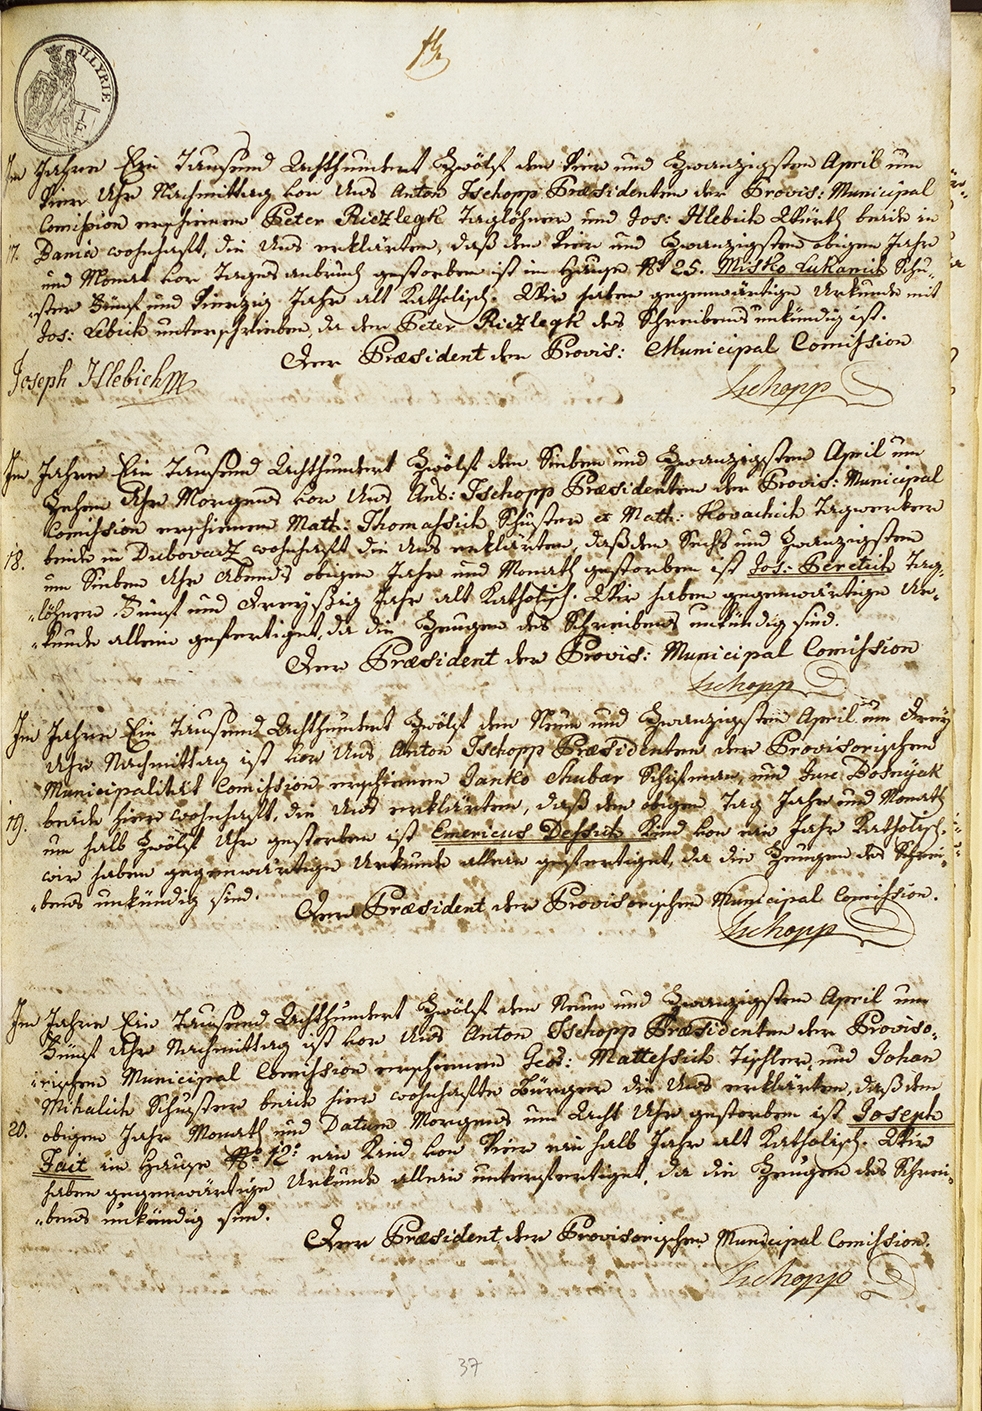 ILLYRIE
Im Jahre Ein Tausend Achthundert Zwölf den Vier und Zwanzigsten April um
Vier Uhr Nachmittag vor Uns Anton Tschopp Præsidenten der Provis: Municipal
Comißion erschienen Peter Riezlegk Taglöhner und Jos: Hlebich Wirth beide in
17. Bania wohnhaft, die Uns erklärten, daß den Vier und Zwanzigsten obigen Jahr
und Monat vor Tagesanbruch gestorben ist im Hause No 25. Misko Lukanich Schu„
„ster Fünf und Vierzig Jahr alt Katholisch. Wir haben gegenwärtige Urkunde mit
Jos: Lebich unterschrieben, da der Peter Riezlegk des Schreibens unkündig ist.
Der Præsident der Provis: Municipal Comißion
Joseph Hlebich
Tschopp
Im Jahre Ein Tausend Achthundert Zwölf den Sieben und Zwanzigsten April um
Zehen Uhr Morgens vor Uns Ant: Tschopp Præsidenten der Provis: Municipal
Comißion erschienen Math: Thomassich Schuster et Math: Kovachich Tagwerker
beide in Dubovaz wohnhaft die Uns erklärten, daß den Sechs und Zwanzigsten
18. um Sieben Uhr Abends obigen Jahr und Monath gestorben ist Jos: Peretich Tag„
„löhner Fünf und Dreyßig Jahr alt Katholisch. Wir haben gegenwärtige Ur„
„kunde allein gefertiget, da die Zeugen des Schreibens unkündig sind.
Der Præsident der Provis: Municipal Comißion
Tschopp
Im Jahre Ein Tausend Achthundert Zwölf den Neun und Zwanzigsten April um Drey
Uhr Nachmittag ist vor Uns Anton Tschopp Præsidenten der Provisorischen
Municipalität Comißion erschienen Janko Shubar Schifman und Jure Bosnyak
19. beide hier wohnhaft, die Uns erklärten, daß den obigen Tag Jahr und Monath
um halb Zwölf Uhr gestorben ist Emericus Dessich Kind von ein Jahr Katholisch.
Wir haben gegenwärtige Urkunde allein gefertiget, da die Zeugen des Schrei„
„bens unkündig sind.
Der Præsident der Provisorischen Municipal Comißion.
Tschopp
Im Jahre Ein Tausend Achthundert Zwölf den Neun und Zwanzigsten April um
Fünf Uhr Nachmittag ist vor Uns Anton Tschopp Præsidenten der Proviso„
„rischen Municipal Comißion erschienen Geo: Mattessich Tischler, und Johan
Mihalich Schuster beide hier wohnhafte Bürger die Uns erklärten, daß den
20. obigen Jahr Monath und Datum Morgens um Acht Uhr gestorben ist Joseph
Fait im Hause No 12: ein Kind von Vier ein halb Jahr alt Katholisch. Wir
haben gegenwärtige Urkunde allein unterfertiget, da die Zeugen des Schrei„
„bens unkündig sind.
Der Præsident der Provisorischen Municipal Comißion.
Tschopp
37